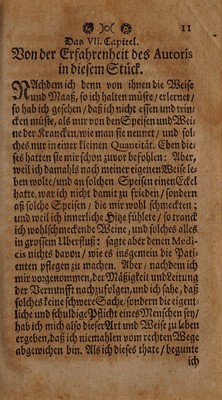 11
Das VII. Capitel.
Von der Erfahrenheit des Autoris
in diesem Stück.
NAchdem ich denn von ihnen die Weise
und Maaß, so ich halten müste, erlernet,
so hab ich gesehen, daß ich nicht essen und trin-
cken müste, als nur von den Speisen und Wei-
ne der Krancken, wie man sie nennet, und sol-
ches nur in einer kleinen Quantität. Eben die-
ses hatten sie mir schon zuvor befohlen: Aber,
weil ich damahls nach meiner eigenen Weise le-
ben wolte, und an solchen Speisen einen Eckel
hatte, war ich nicht damit zu frieden, sondern
aß solche Speisen, die mir wohl schmeckten;
und weil ich innerliche Hitze fühlete, so tranck
ich wohlschmeckende Weine, und solches alles
in grossem Uberfluß: sagte aber denen Medi-
cis nichts davon, wie es insgemein die Pati-
enten pflegen zu machen. Aber, nachdem ich
mir vorgenommen, der Mäßigkeit und Leitung
der Vernunfft nachzufolgen, und ich sahe, daß
solches keine schwere Sache, sondern die eigent-
liche und schuldige Pflicht eines Menschen sey,
hab ich mich also dieser Art und Weise zu leben
ergeben, daß ich niemahlen vom rechten Wege
abgewichen bin. Als ich dieses thate, begunte
ich